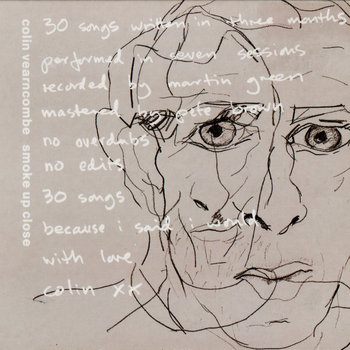 colin vearncombe smoke up close
30 songs written in three months
performed in seven sessions
recorded by martin green
mastered by pete brown
no overdubs
no edits
30 songs
because i said i would
with love
colin xx